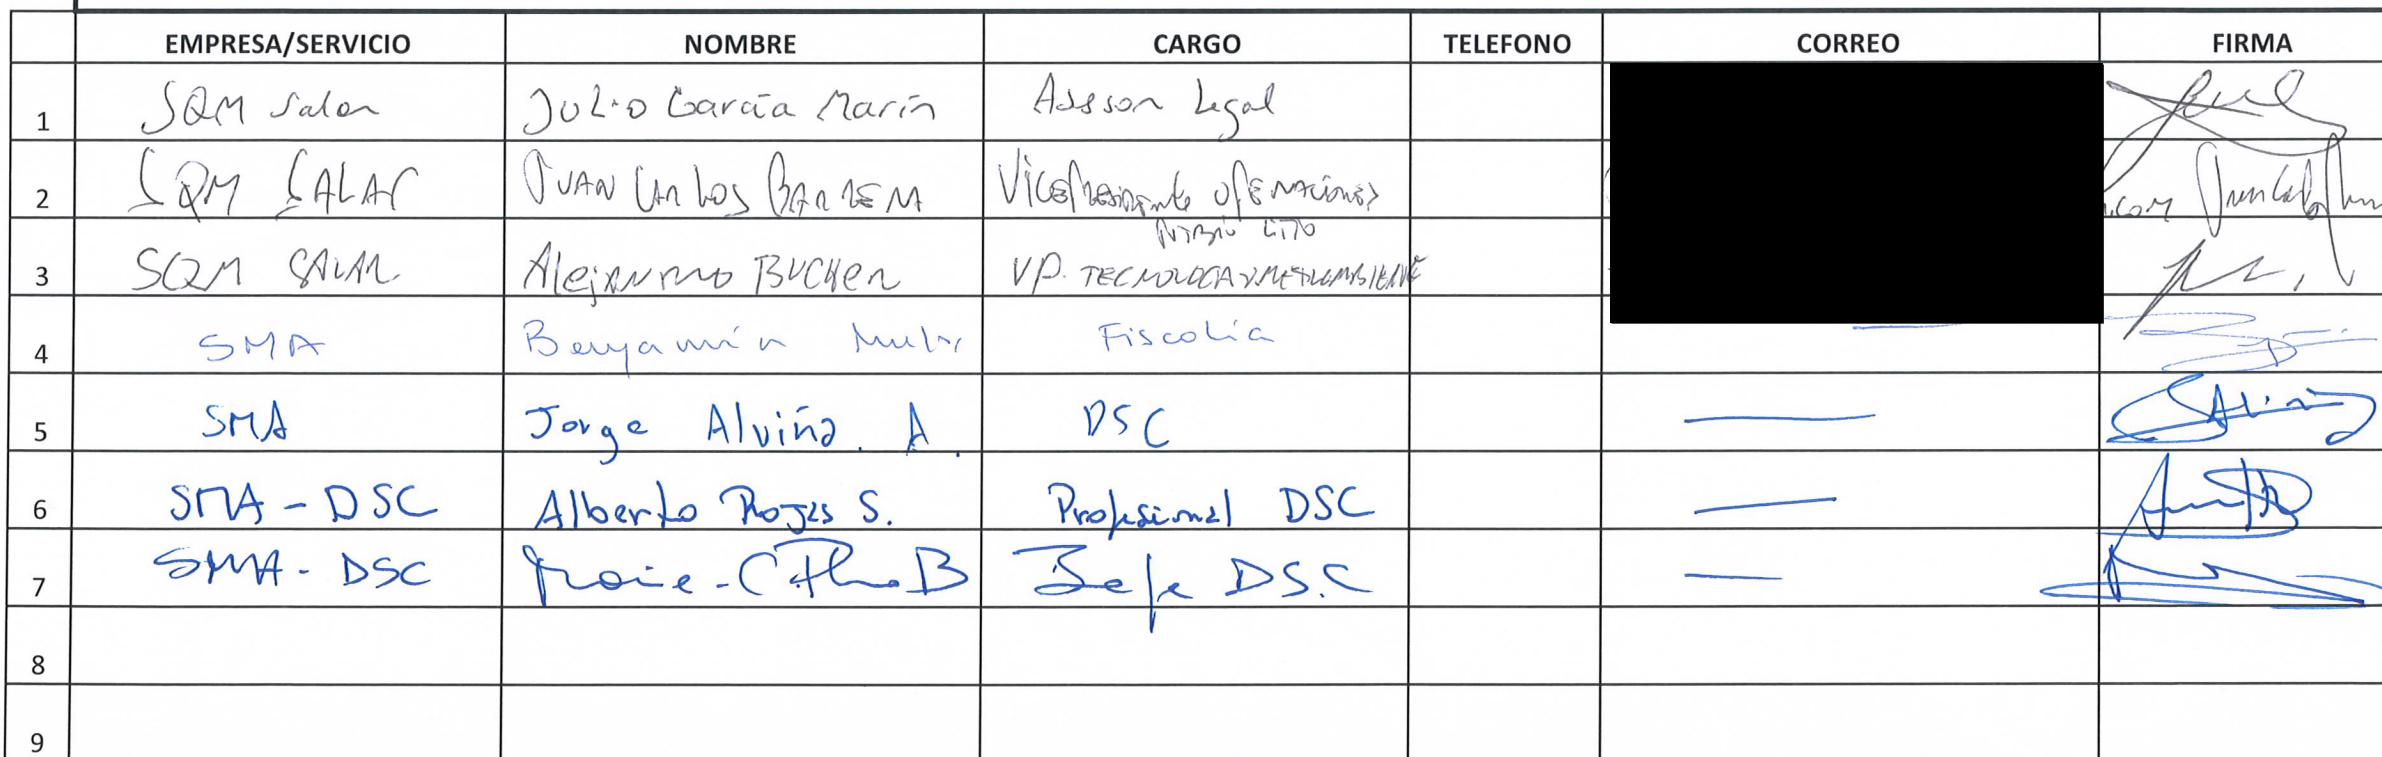 EMPRESA/SERVICIO NOMBRE CARGO TELEFONO CORREO FIRMA
1 SQM Salar Julio García Marín Asesor Legal
2 SQM SALAR JUAN CARLOS BARRERA Vicepresidente Operaciones .com
Nitrato Litio
3 SQM SALAR Alejandro BUCHER VP. TECNOLOGIA Y MEDIOAMBIENTE
4 SMA Benjamín Fiscalía
5 SMA Jorge Alviña. A. DSC
6 SMA - DSC Alberto Rojas S. Profesional DSC
7 SMA - DSC Marie-C B Jefe DSC
8
9